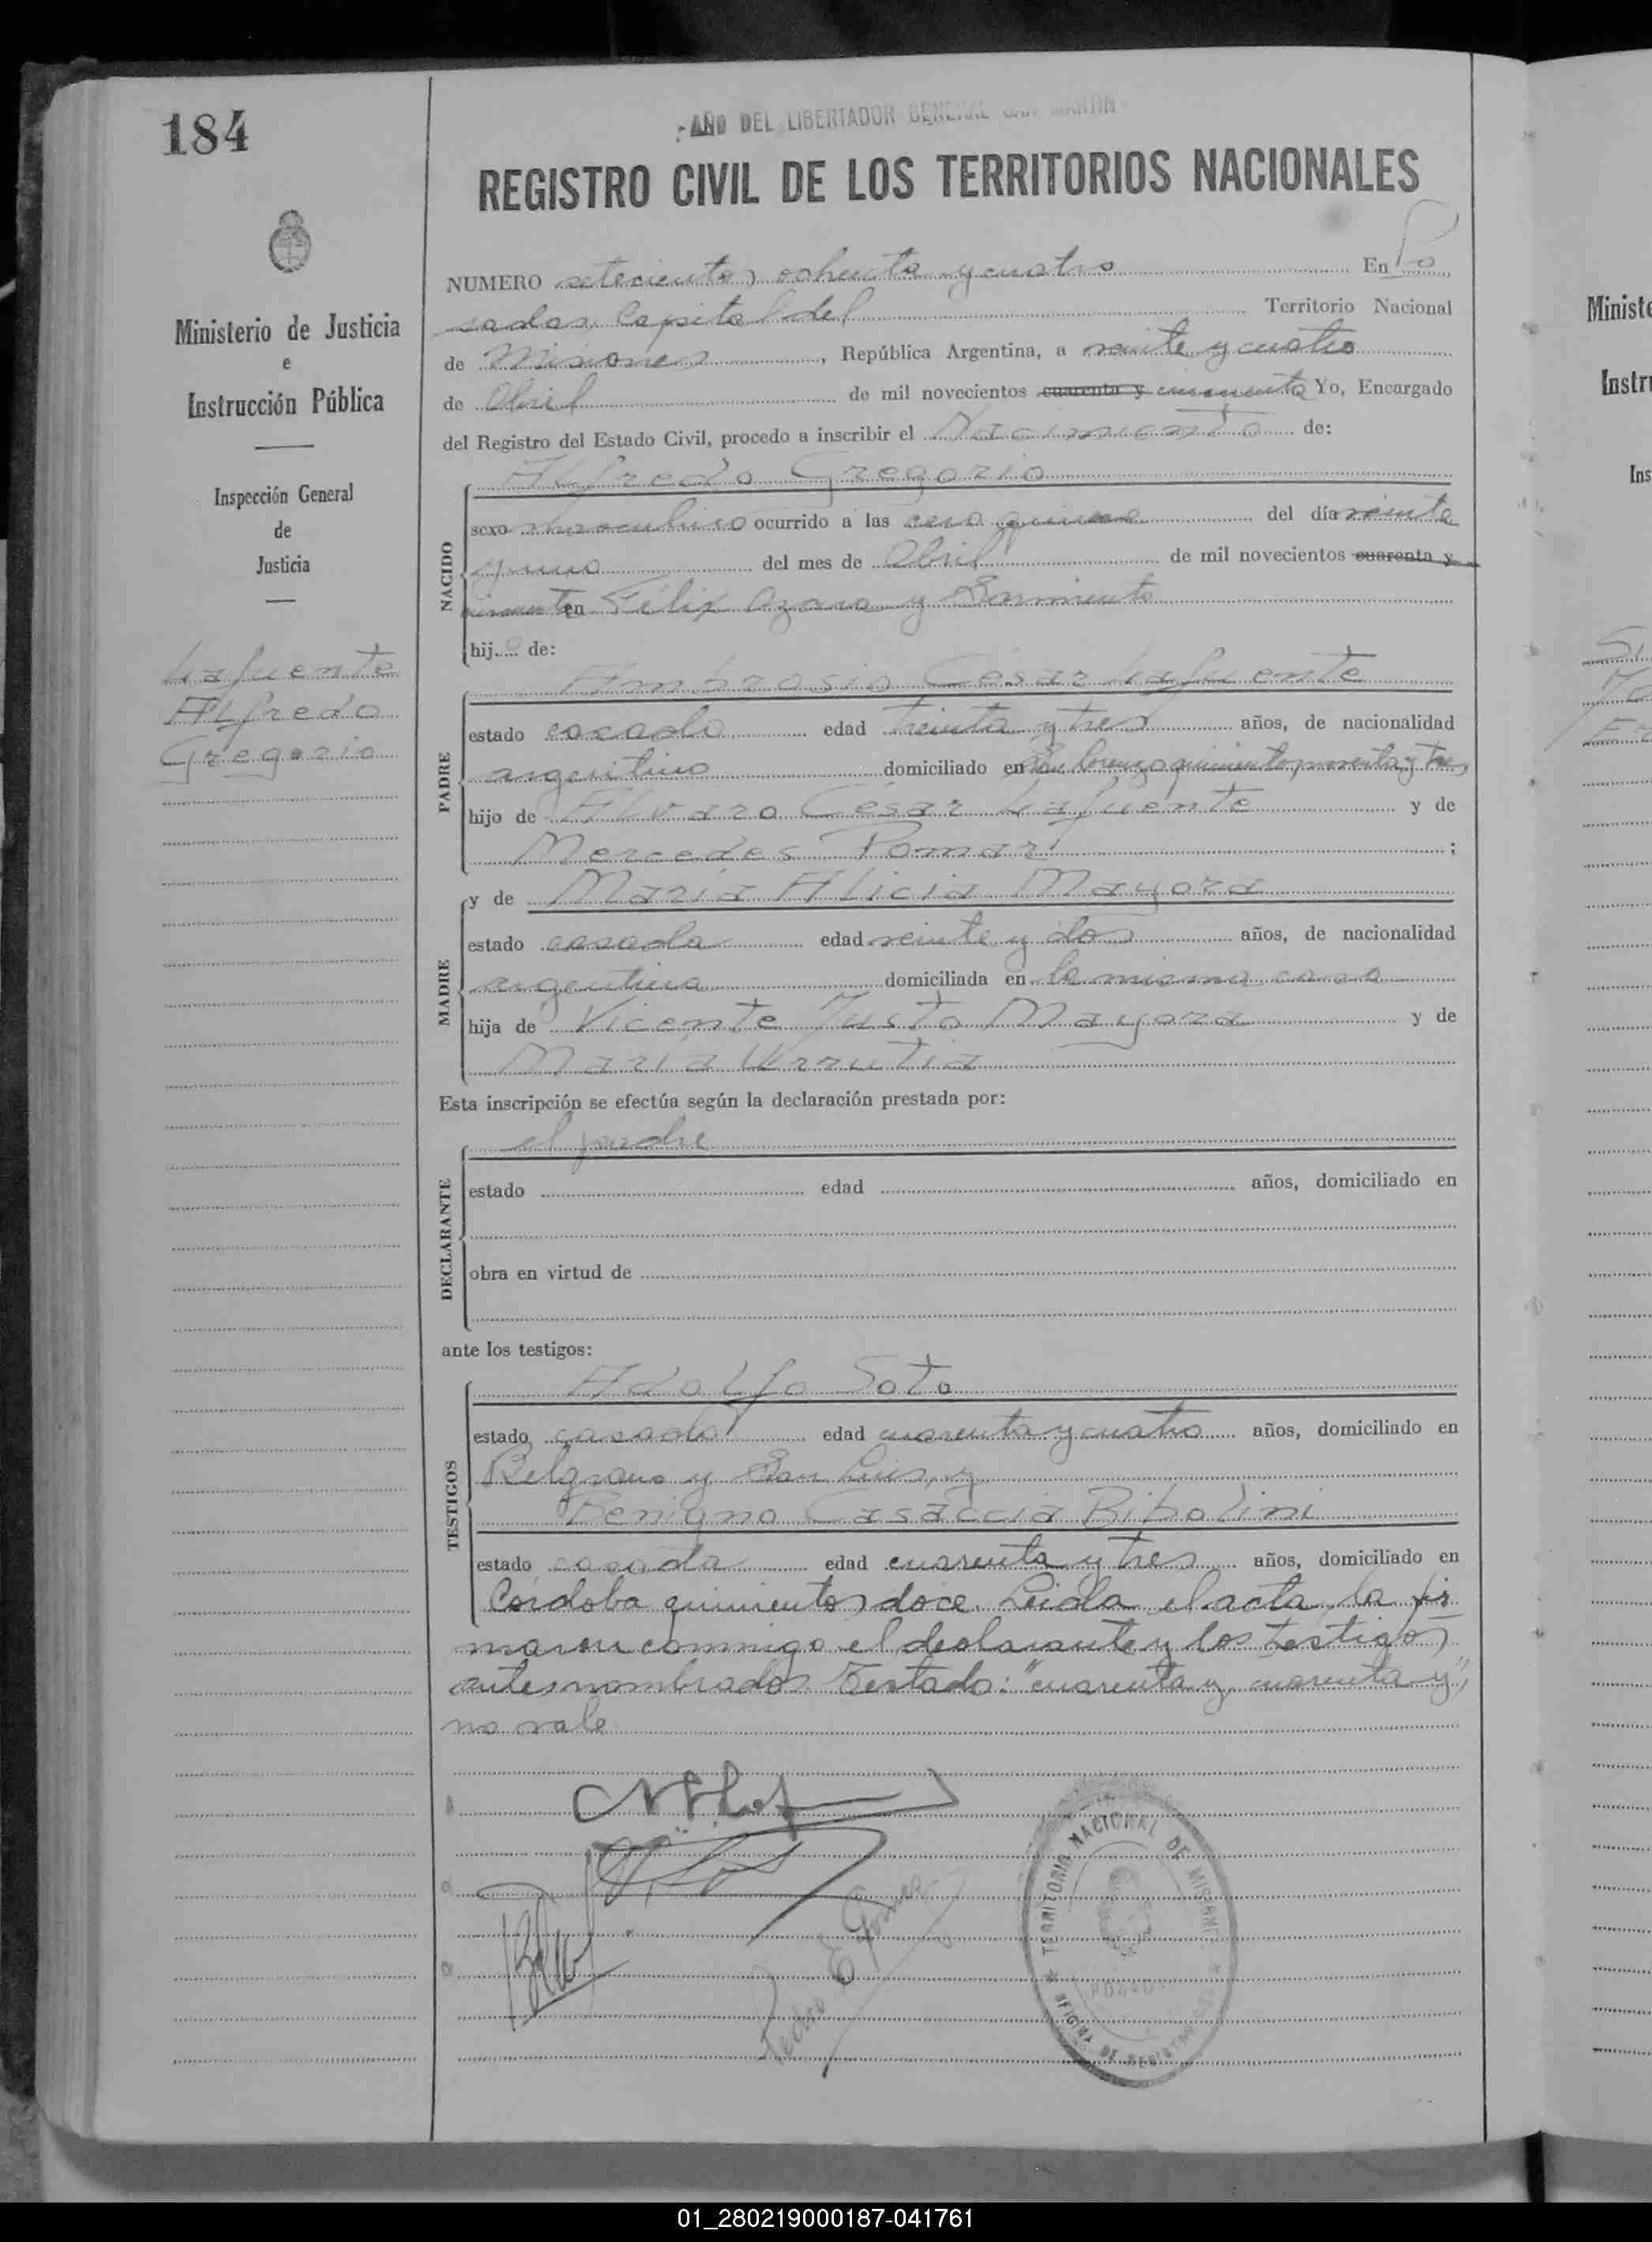 184
AÑO DEL LIBERTADOR GENERAL SAN MARTIN
REGISTRO CIVIL DE LOS TERRITORIOS NACIONALES
Ministerio de Justicia
e
Instrucción Pública
Inspección General
de
Justicia
Lafuente
Alfredo
Gregorio
NUMERO setecientos ochenta y cuatro En Po
sadas, Capital del Territorio Nacional
de Misiones, República Argentina, a veinte y cuatro
de Abril de mil novecientos cuarenta y cincuenta Yo, Encargado
del Registro del Estado Civil, procedo a inscribir el Nacimiento de:
NACIDO
Alfredo Gregorio
sexo masculino ocurrido a las cero quince del día veinte
y uno del mes de Abril de mil novecientos cuarenta y
cincuenta en Félix Azara y Sarmiento
hijo de:
PADRE
Ambrosio César Lafuente
estado casado edad treinta y tres años, de nacionalidad
argentino domiciliado en San Lorenzo quinientos noventa y tres,
hijo de Alvaro César Lafuente y de
Mercedes Pomar ;
MADRE
y de María Alicia Mayora
estado casada edad veinte y dos años, de nacionalidad
argentina domiciliada en la misma casa
hija de Vicente Justo Mayora y de
María Urrutia
Esta inscripción se efectúa según la declaración prestada por:
DECLARANTE
el padre
estado edad años, domiciliado en
obra en virtud de
ante los testigos:
TESTIGOS
Adolfo Soto
estado casado edad cuarenta y cuatro años, domiciliado en
Belgrano y San Luis, y
Benigno Casaccia Bibolini
estado casado edad cuarenta y tres años, domiciliado en
Córdoba quinientos doce. Leída el acta, la fir
maron conmigo el declarante y los testigos
antes nombrados. Testado: "cuarenta y, cuarenta y",
no vale
Pedro E. Gomez
TERRITORIO NACIONAL DE MISIONES
POSADAS
OFICINA DE REGISTRO
Ministe
Instru
Ins
01_280219000187-041761